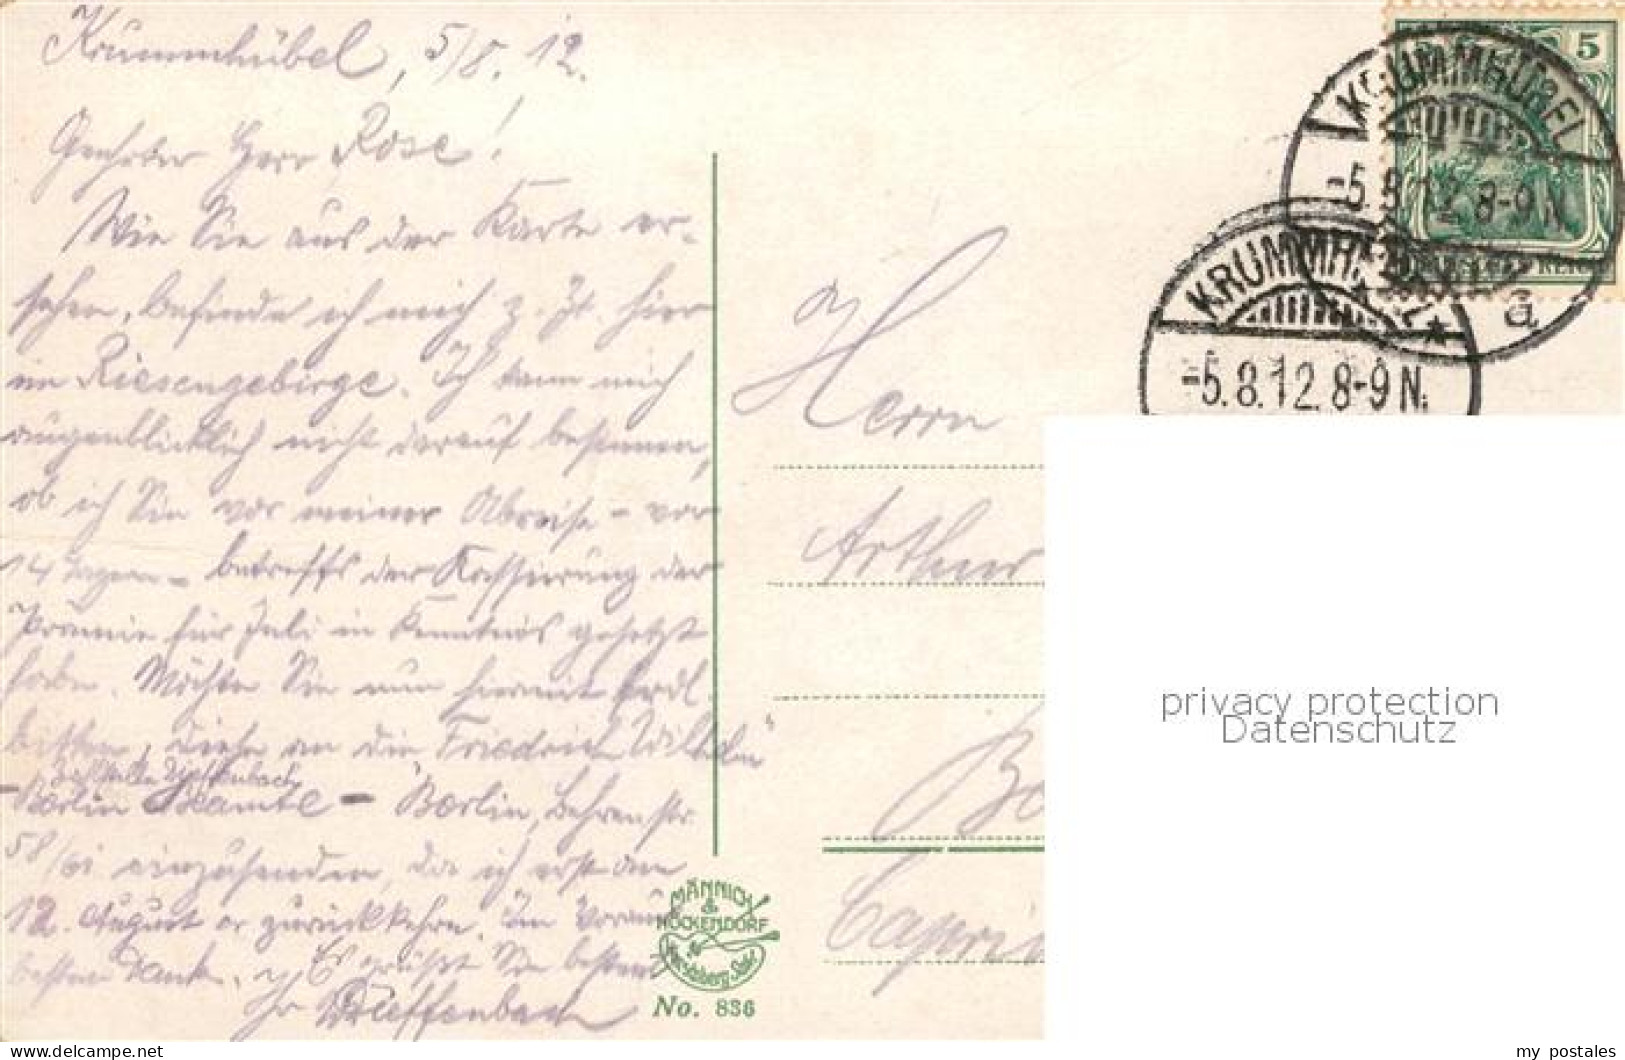 Krummhübel, 5/8. 12.
Geehrter Herr Rose!
Wie Sie aus der Karte er-
sehen, befinde ich mich z. Zt. hier
im Riesengebirge. Ich kann mich
augenblicklich nicht darauf besinnen,
ob ich Sie vor meiner Abreise - vor
14 Tagen - betreffs der Kassierung der
Prämie für Juli in Kenntnis gesetzt
habe. Möchte Sie nun hiermit frdl.
bitten, diese an die Friedrich Wilhelm"
Zahlstelle Dieffenbach
- Berlin Beamte - Berlin, Behrenstr.
58/61 einzusenden, da ich erst am
12. August er zurückkehre. Im Voraus
besten Dank. Es grüßt Sie bestens
Ihr Dieffenbach
Herrn
Arthur
KRUMMHÜBEL
-5.8.12.8-9N.
a
KRUMMHÜBEL
-5.8.12.8-9N.
5
DEUTSCHES REICH
MÄNNICH
&
HÖCKENDORF
No. 836
privacy protection
Datenschutz
my postales